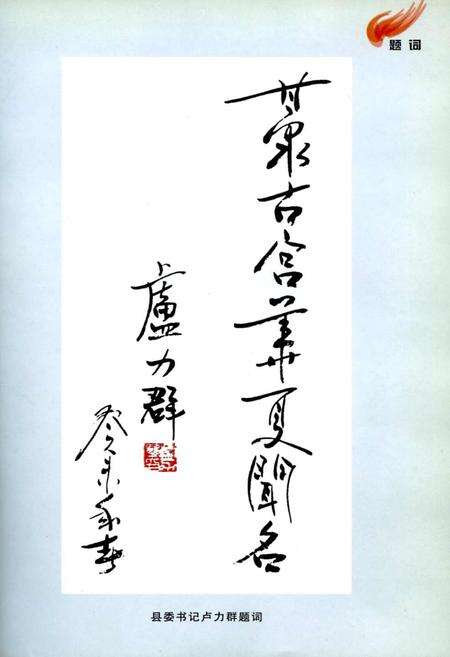 题词
蒙古 華夏聞名
盧力群
癸未年春
县委书记卢力群题词